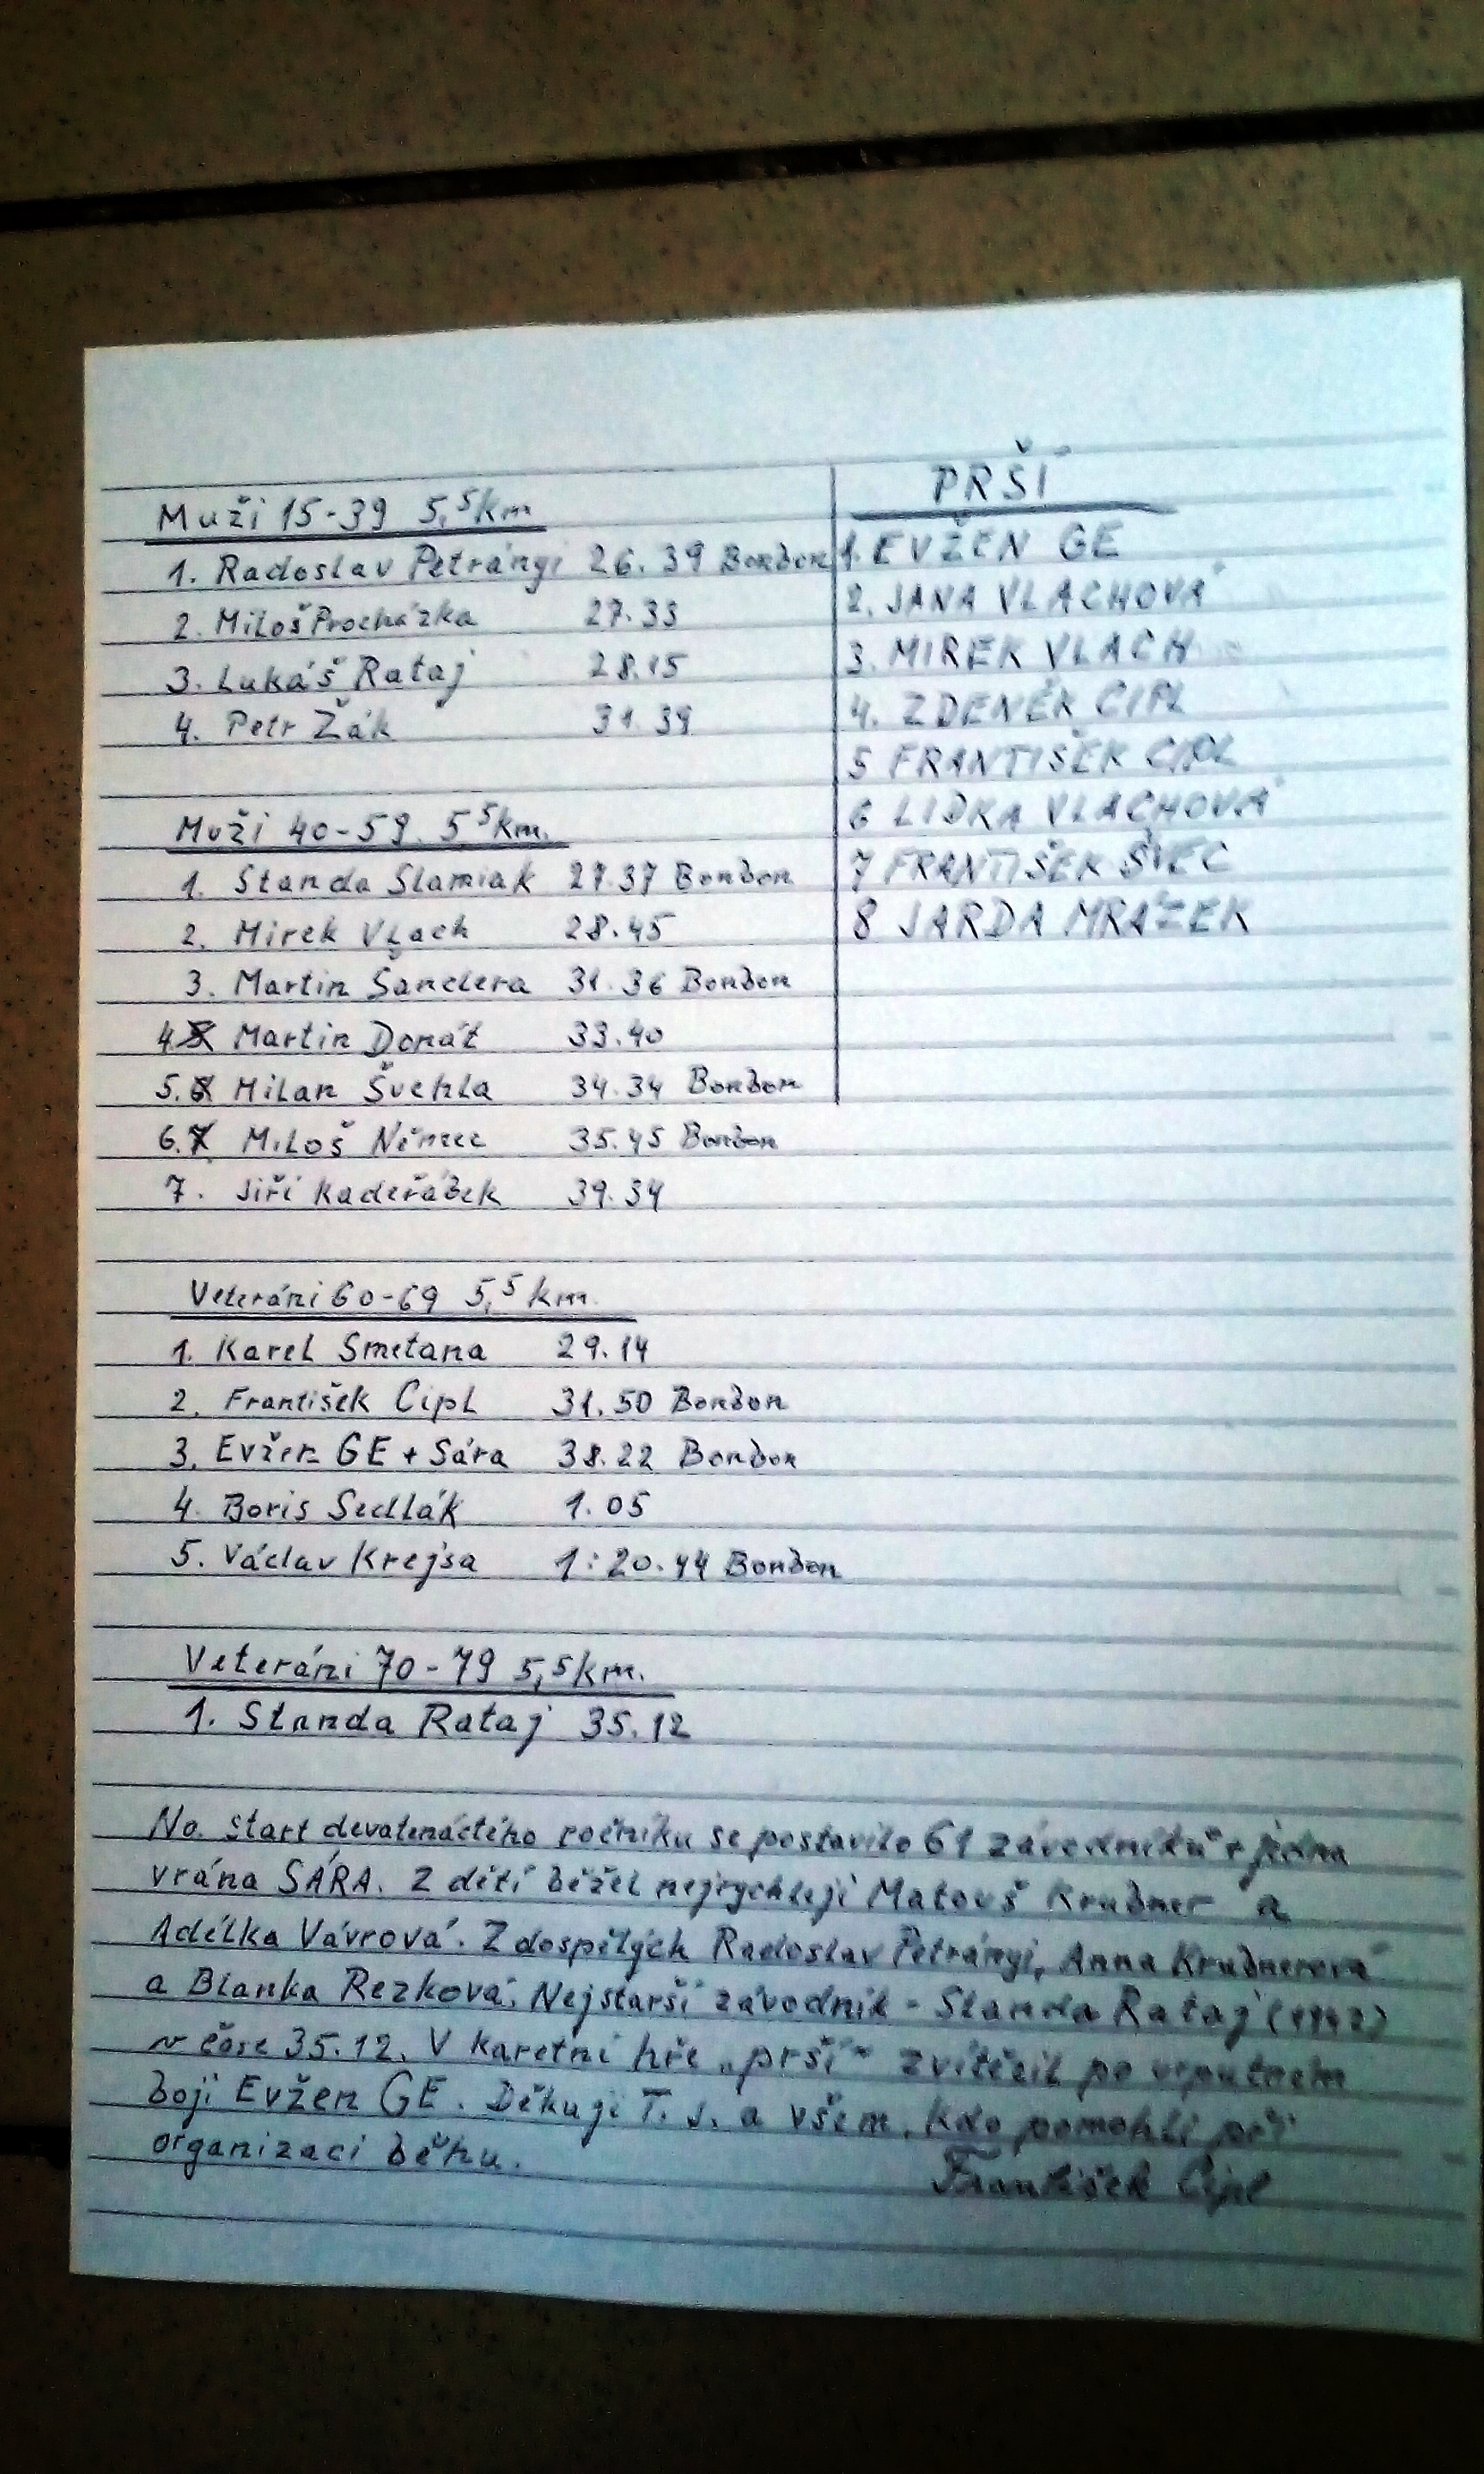 Muži 15-39 5,5km
1. Radoslav Petrányi 26.39 Bonbon
2. Miloš Procházka 27.33
3. Lukáš Rataj 28.15
4. Petr Žák 31.39
Muži 40-59. 5,5km.
1. Standa Slamiak 27.37 Bonbon
2. Mirek Vlach 28.45
3. Martin Šandera 31.36 Bonbon
4. Martin Donát 33.40
5. Milan Švehla 34.34 Bonbon
6. Miloš Němec 35.45 Bonbon
7. Jiří Kadeřábek 39.34
Veteráni 60-69 5,5 km.
1. Karel Smetana 29.14
2. František Cipl 31.50 Bonbon
3. Evžen GE + Sára 38.22 Bonbon
4. Boris Sedlák 1.05
5. Václav Krejsa 1:20.44 Bonbon
Veteráni 70-79 5,5km.
1. Standa Rataj 35.12
PRŠÍ
1. EVŽEN GE
2. JANA VLACHOVÁ
3. MIREK VLACH
4. ZDENĚK CIPL
5 FRANTIŠEK CIPL
6 LIDKA VLACHOVÁ
7 FRANTIŠEK ŠVEC
8 JARDA MRÁZEK
Na start devatenáctého ročníku se postavilo 61 závodníků + jedna
vrána SÁRA. Z dětí běžel nejrychleji Matouš Krubner a
Adélka Vávrová. Z dospělých Radoslav Petrányi, Anna Krubnerová
a Blanka Rezková. Nejstarší závodník - Standa Rataj (1942)
v čase 35.12. V karetní hře „prší" zvítězil po urputném
boji Evžen GE. Děkuji T. J. a všem, kdo pomohli při
organizaci běhu.
František Cipl